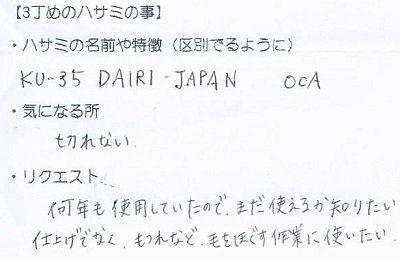 【3丁めのハサミの事】
・ハサミの名前や特徴（区別でるように）
KU-35 DAIRI-JAPAN OCA
・気になる所
切れない
・リクエスト
何年も使用していたので、まだ使えるか知りたい
仕上げでなく、もつれなど、毛をほぐす作業に使いたい。